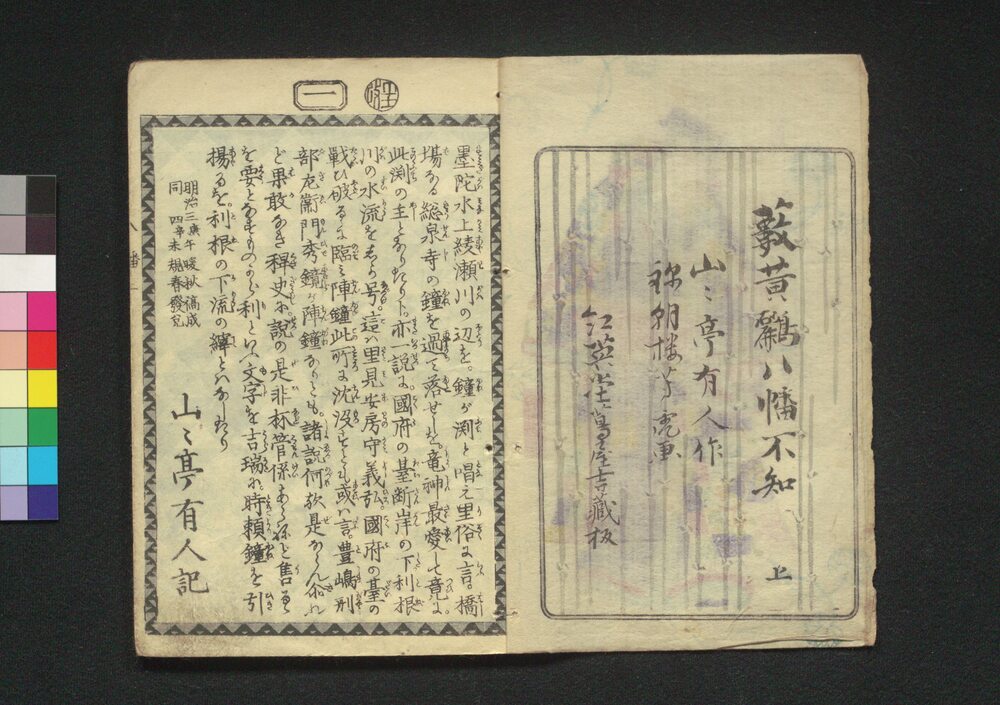 藪黄鸝八幡不知 上
山〻亭有人作
孟齋芳虎画
紅英堂蔦屋吉藏板
一
墨陀水上綾瀬川の辺を。鐘が渕と唱え里俗に言。橋
場なる総泉寺の鐘を過て落せしを。竜神最愛して竟に
此渕の主となりたりト。亦一説に。國府の臺断岸の下利根
川の水流をしか号。這ハ里見安房守義弘。國府の臺の
戦ひ破るゝに臨ミ陣鐘此所に沈没せしとも或ハ言。豊嶋刑
部左衛門秀鏡が陣鐘なりとも。諸説何れ是ならん
ど果敢なき稗史に。説の是非杯管係あらねど售
を要とするものから利といふ文字を吉瑞に。時頼鐘を引
揚るを。利根の下流の縡とハなしたり
明治三庚午 暖秋稿成
同 四辛未 規春發兌
山〻亭有人記